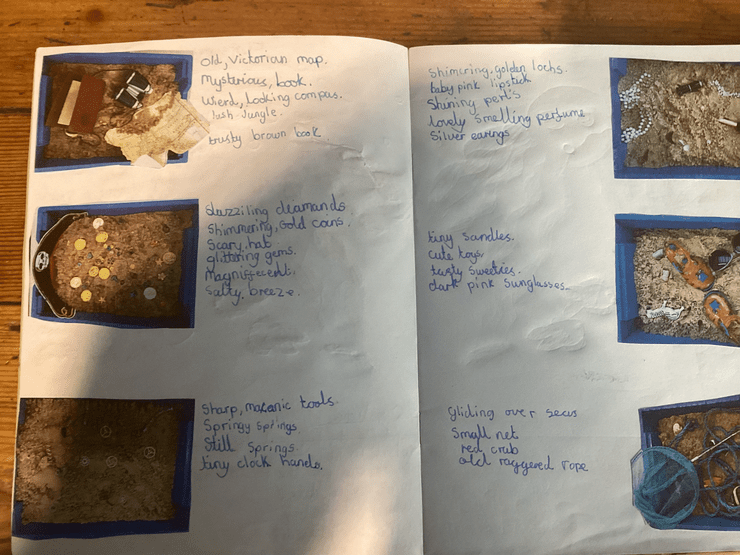 Old, Victorian map.
Mysterious, book.
Wierd, Looking compas.
lush Jungle.
trusty brown book.
dazziling deamands.
Shimmering, Gold coins.
Scary hat
glittering gems.
Magniffecent.
Salty, breeze.
Sharp, mecanic tools.
Springy Springs
Still Springs
tiny clock hands.
Shimering, golden lochs.
baby pink lipstick
Shining perls
lovely Smelling perfume
Silver earings
tiny sandles.
Cute toys
tasty Sweeties.
dark pink Sunglasses.
Gliding over seas
Small net
red crab
old raggered rope